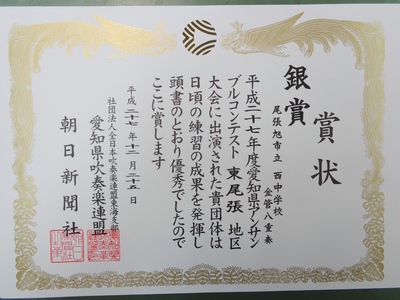 賞状
銀賞
尾張旭市立 西中学校
金管八重奏
平成二十七年度愛知県アンサン
ブルコンテスト 東尾張 地区
大会に出演された貴団体は
日頃の練習の成果を発揮し
頭書のとおり優秀でしたので
ここに賞します
平成二十七年十二月二十五日
社団法人全日本吹奏楽連盟東海支部
愛知県吹奏楽連盟
朝日新聞社